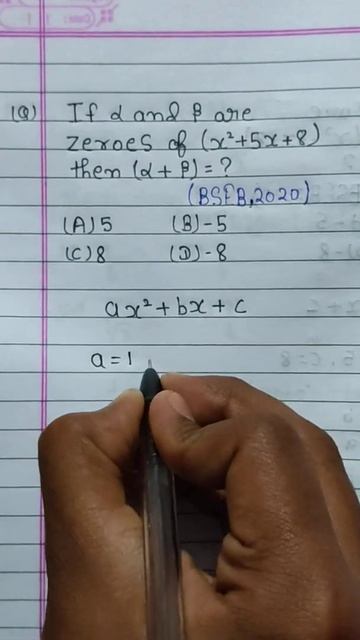 (Q) If α and β are
zeroes of (x²+5x+8)
then (α + β) = ?
(BSEB,2020)
(A) 5 (B) -5
(C) 8 (D) -8
ax² + bx + c
a = 1